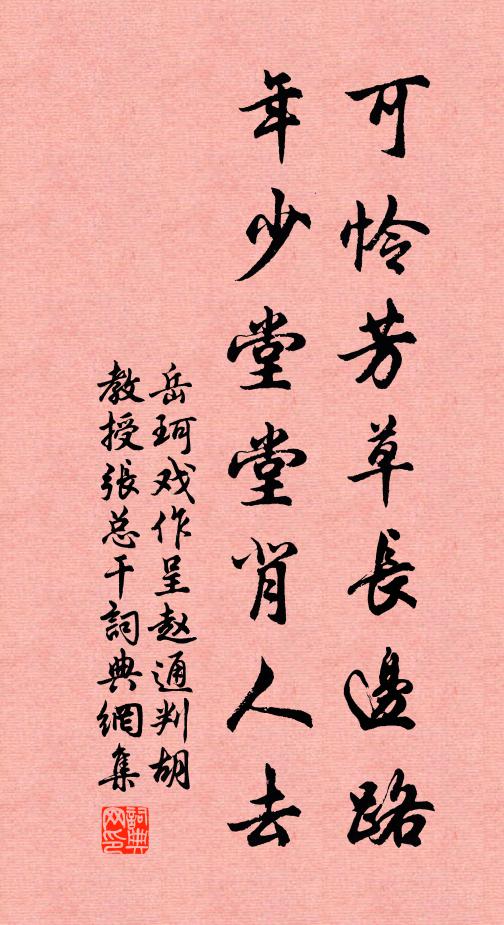 可怜芳草長邊路
年少堂堂背人去
岳珂戏作呈赵通判胡
教授張总干詞典網集
詞典
网印